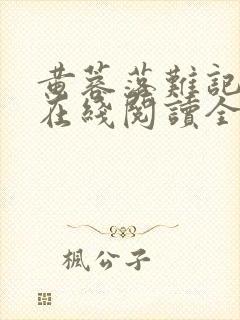 黄蓉落難記
在綫閱讀全
楓公子